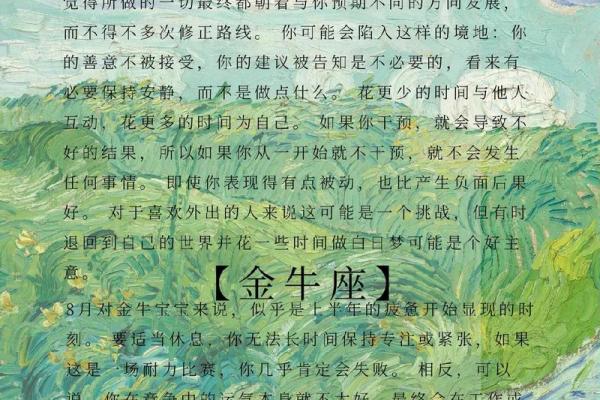 觉得所做的一切最终都朝着与你预期不同的方向发展，
而不得不多次修正路线。 你可能会陷入这样的境地：你
的善意不被接受，你的建议被告知是不必要的，看来有
必要保持安静，而不是做点什么。 花更少的时间与他人
互动，花更多的时间为自己。 如果你干预，就会导致不
好的结果，所以如果你从一开始就不干预，就不会发生
任何事情。 即使你表现得有点被动，也比产生负面后果
好。 对于喜欢外出的人来说这可能是一个挑战，但有时
退回到自己的世界并花一些时间做白日梦可能是个好主
意。
【金牛座】
8月对金牛宝宝来说，似乎是上半年的疲惫开始显现的时
刻。 要适当休息，你无法长时间保持专注或紧张，如果
这是一场耐力比赛，你几乎肯定会失败。 相反，可以
说，你在竞争中的运气本身就不太好，最终会在工作或